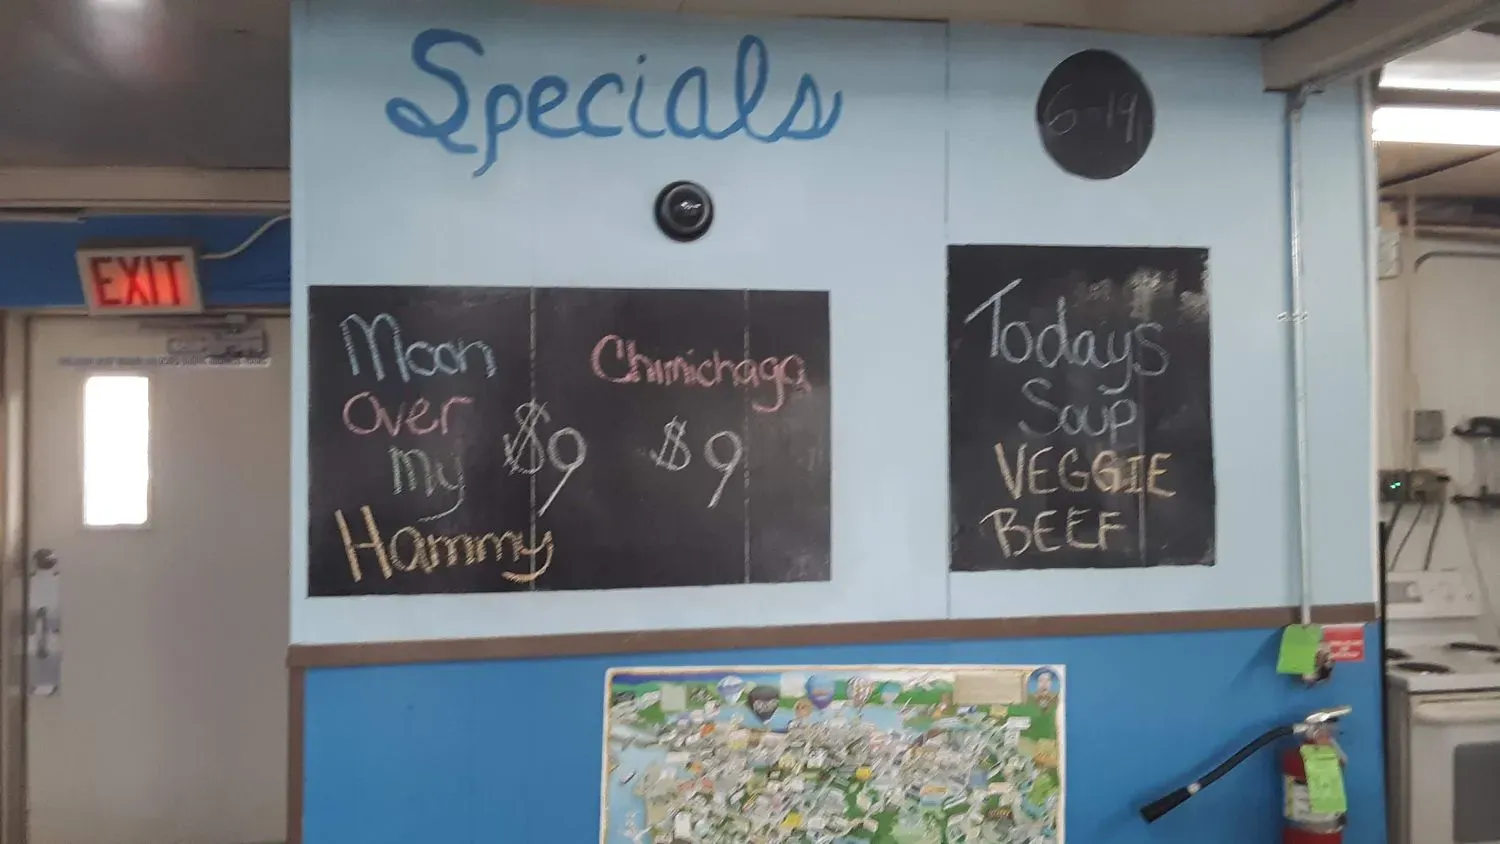 Specials
6-19
EXIT
Moon
Over
My
Hammy
$9
Chimichaga
$9
Todays
Soup
VEGGIE
BEEF